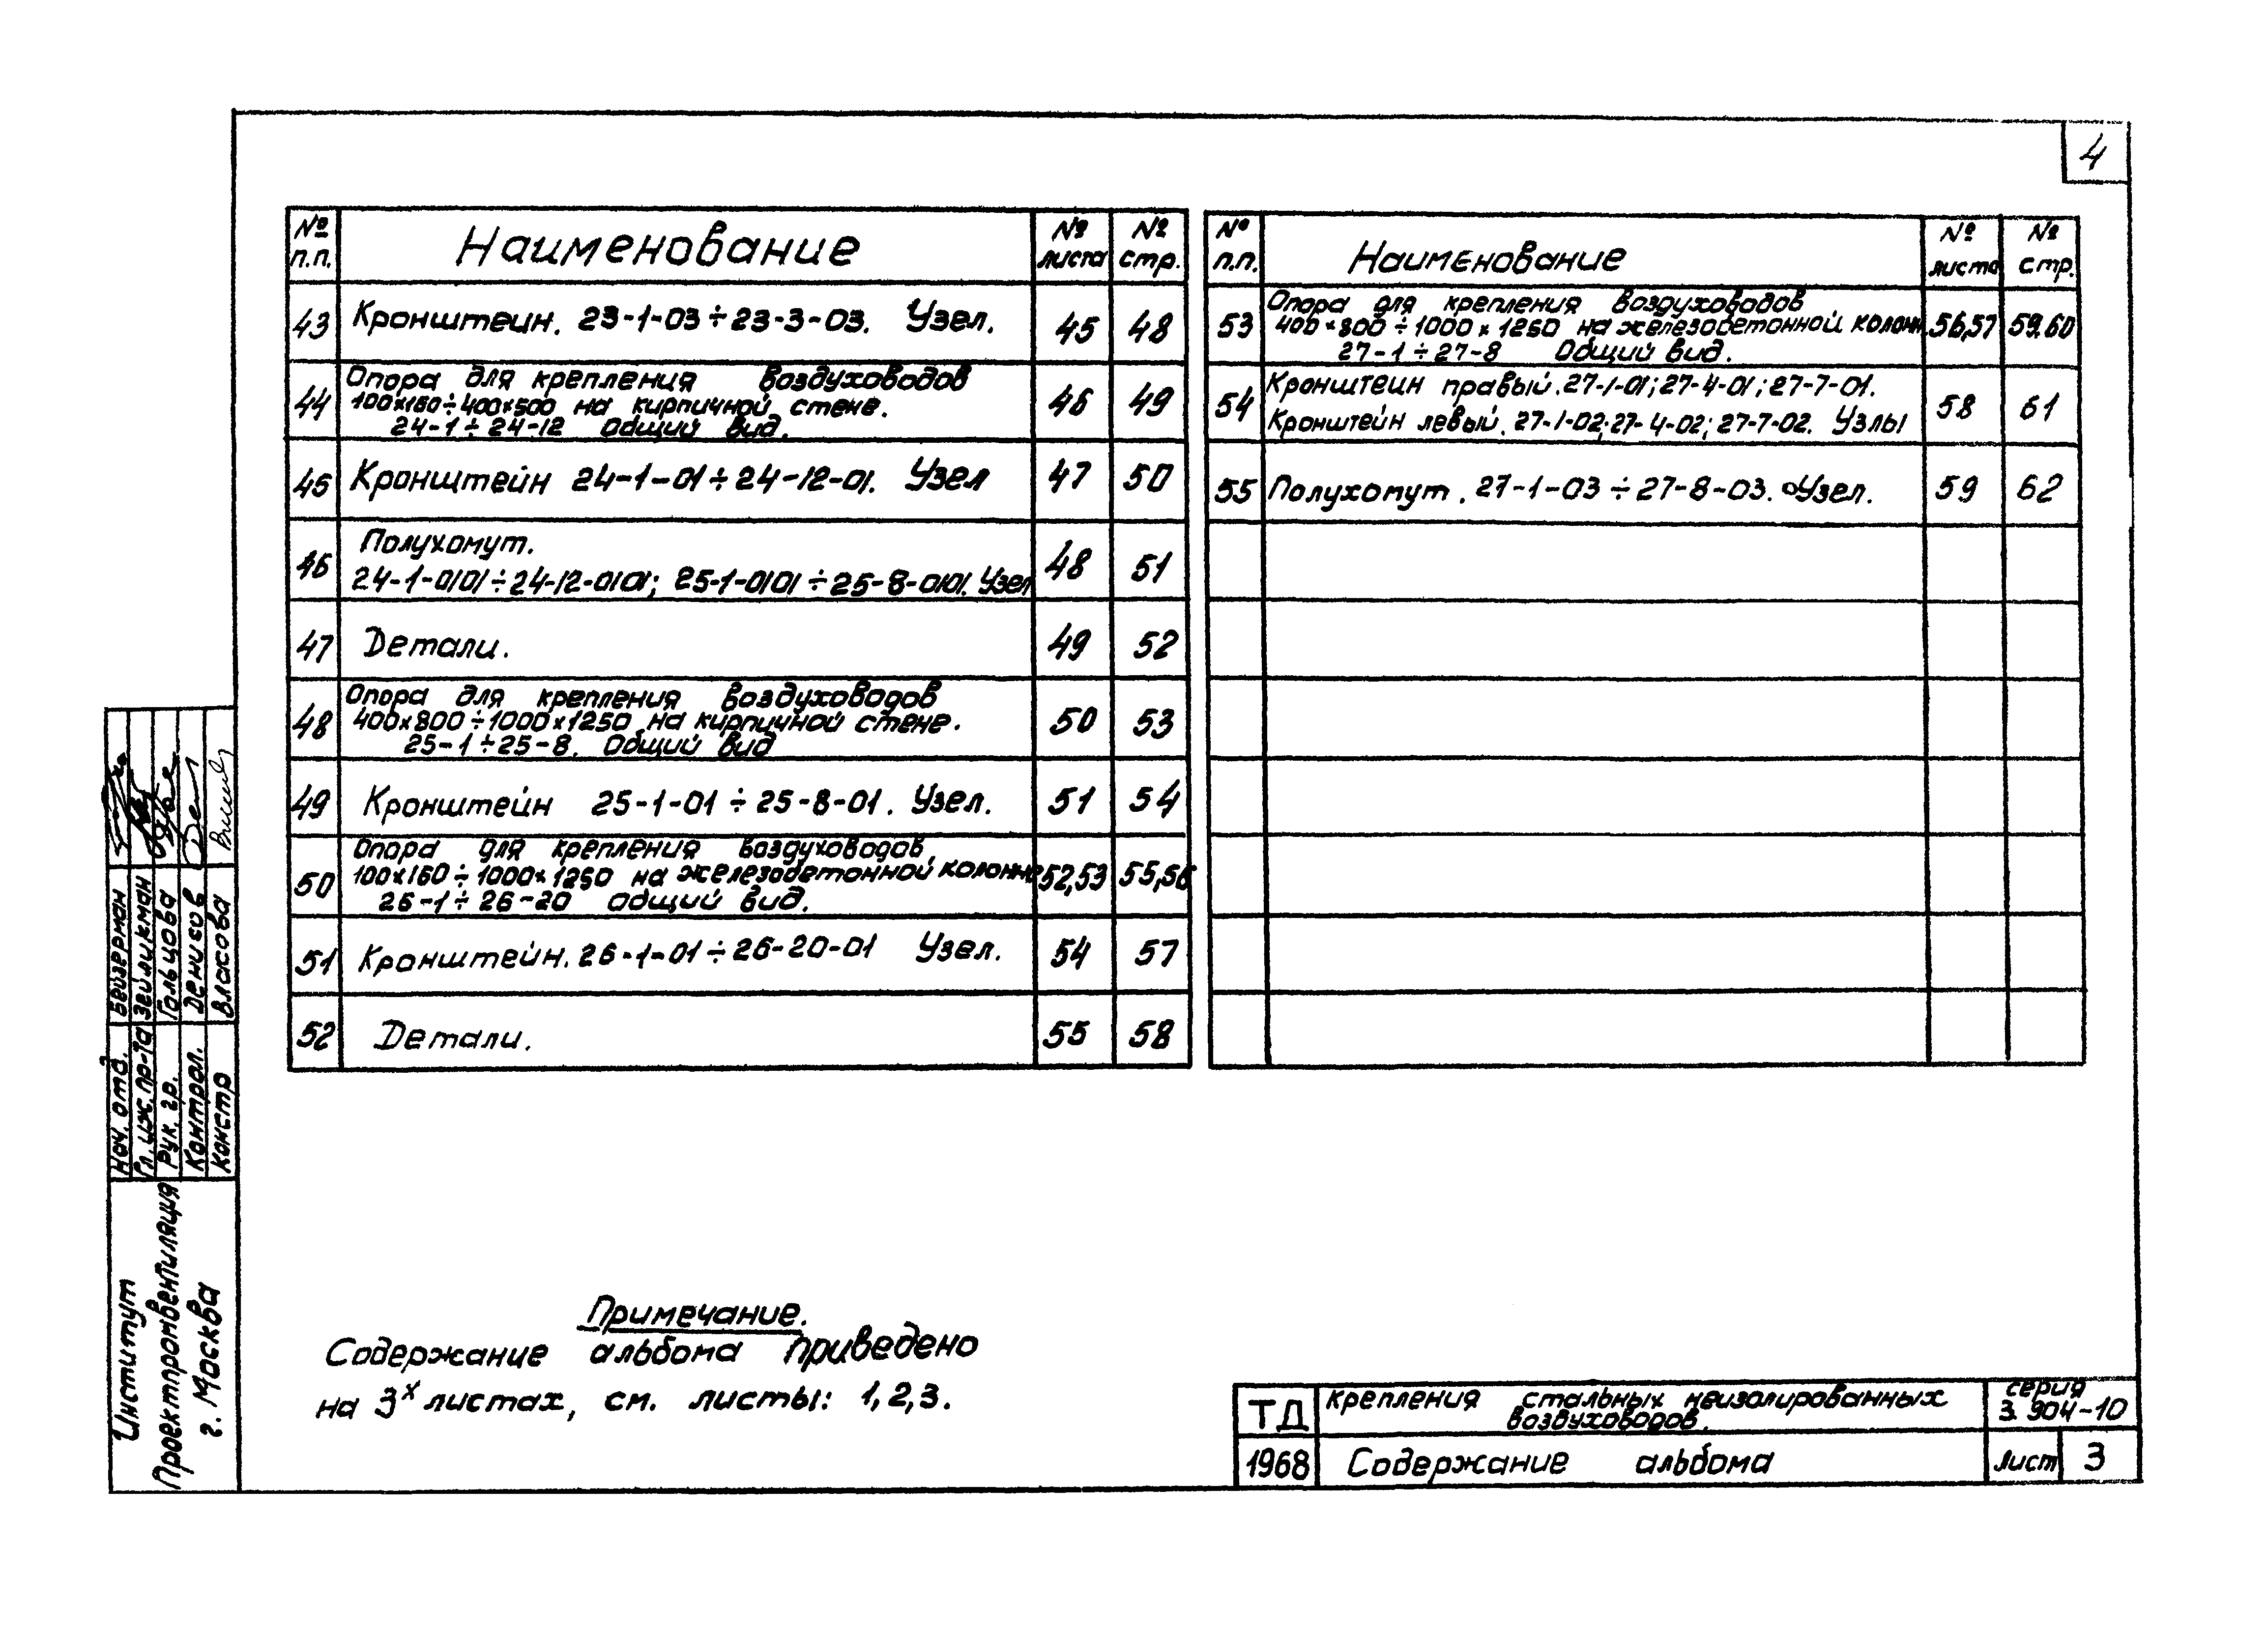 4
№ п.п. Наименование № листа № стр.
43 Кронштейн. 23-1-03÷23-3-03. Узел. 45 48
44 Опора для крепления воздуховодов
100х160÷400х500 на кирпичной стене.
24-1÷24-12 Общий вид. 46 49
45 Кронштейн 24-1-01÷24-12-01. Узел 47 50
46 Полухомут.
24-1-0101÷24-12-0101; 25-1-0101÷25-8-0101. Узел 48 51
47 Детали. 49 52
48 Опора для крепления воздуховодов
400х800÷1000х1250 на кирпичной стене.
25-1÷25-8. Общий вид 50 53
49 Кронштейн 25-1-01÷25-8-01. Узел. 51 54
50 Опора для крепления воздуховодов
100х160÷1000х1250 на железобетонной колонне
26-1÷26-20 общий вид. 52,53 55,56
51 Кронштейн. 26-1-01÷26-20-01 Узел. 54 57
52 Детали. 55 58
№ п.п. Наименование № листа № стр.
53 Опора для крепления воздуховодов
400×800÷1000х1250 на железобетонной колонн.
27-1÷27-8 Общий вид. 56,57 59.60
54 Кронштейн правый. 27-1-01; 27-4-01; 27-7-01.
Кронштейн левый. 27-1-02; 27-4-02; 27-7-02. Узлы 58 61
55 Полухомут. 27-1-03÷27-8-03. Узел. 59 62
Примечание.
Содержание альбома приведено
на 3х листах, см. листы: 1,2,3.
Нач. отд. Бейзерман
Гл. инж. пр-та Зейликман
Рук. гр. Гольцова
Контрол. Денисов
Констр Власова
Институт
Проектпромвентиляция
г. Москва
ТД крепления стальных неизолированных
воздуховодов. серия
3.904-10
1968 Содержание альбома Лист 3